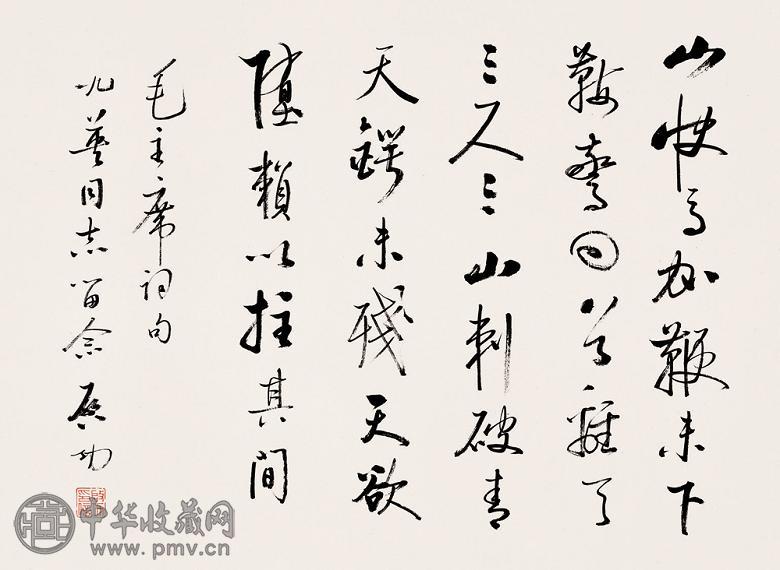 山快馬加鞭未下
鞍驚回首離天
三尺三山刺破青
天鍔未殘天欲
墮賴以拄其間
毛主席詞句
英同志留念 启功
中华收藏网
www.pmv.cn